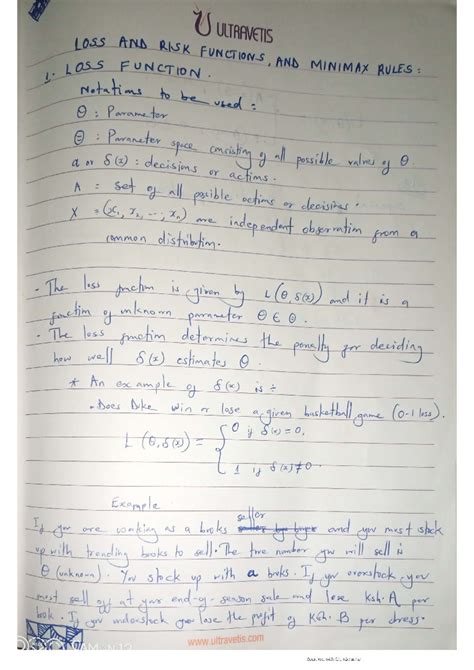 ULTRAVETIS
LOSS AND RISK FUNCTIONS, AND MINIMAX RULES:
1. LOSS FUNCTION.
Notations to be used:
θ : Parameter
Θ : Parameter space consisting of all possible values of θ.
a or δ(x) : decisions or actions.
A = set of all possible actions or decisions.
X = (x₁, x₂, ---, xₙ) are independent observation from a
common distribution.
- The loss function is given by L(θ, δ(x)) and it is a
function of unknown parameter θ ∈ Θ.
- The loss function determines the penalty for deciding
how well δ(x) estimates θ.
* An example of δ(x) is :
- Does Duke win or lose a given basketball game (0-1 loss).
L(θ, δ(x)) = { 0 if δ(x) = 0,
1 if δ(x) ≠ 0.
Example
If you are working as a books seller and you must stock
up with trending books to sell. The true number you will sell is
θ (unknown). You stock up with a books. If you overstock, you
must sell off at your end-of-season sale and lose Ksh. A per
book. If you understock you lose the profit of Ksh. B per dress.
www.ultravetis.com